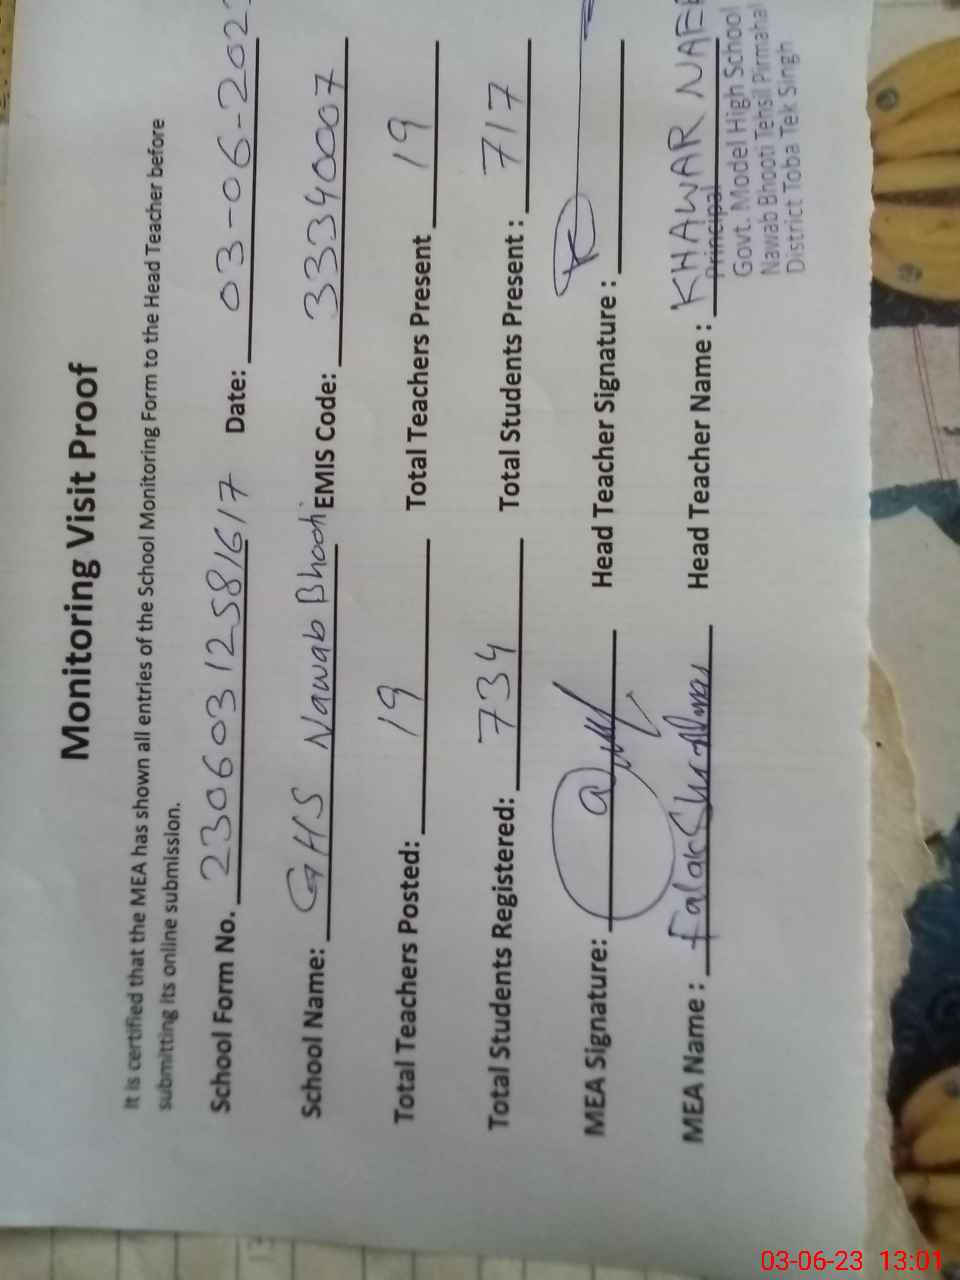 Monitoring Visit Proof
It is certified that the MEA has shown all entries of the School Monitoring Form to the Head Teacher before
submitting its online submission.
School Form No. 23060312581617 Date: 03-06-202
School Name: GHS Nawab Bhooti EMIS Code: 33340007
Total Teachers Posted: 19 Total Teachers Present 19
Total Students Registered: 734 Total Students Present: 717
MEA Signature: Head Teacher Signature:
MEA Name: Falak Head Teacher Name: KHAWAR
Principal
Govt. Model High School
Nawab Bhooti Tehsil Pirmahal
District Toba Tek Singh
03-06-23 13:01